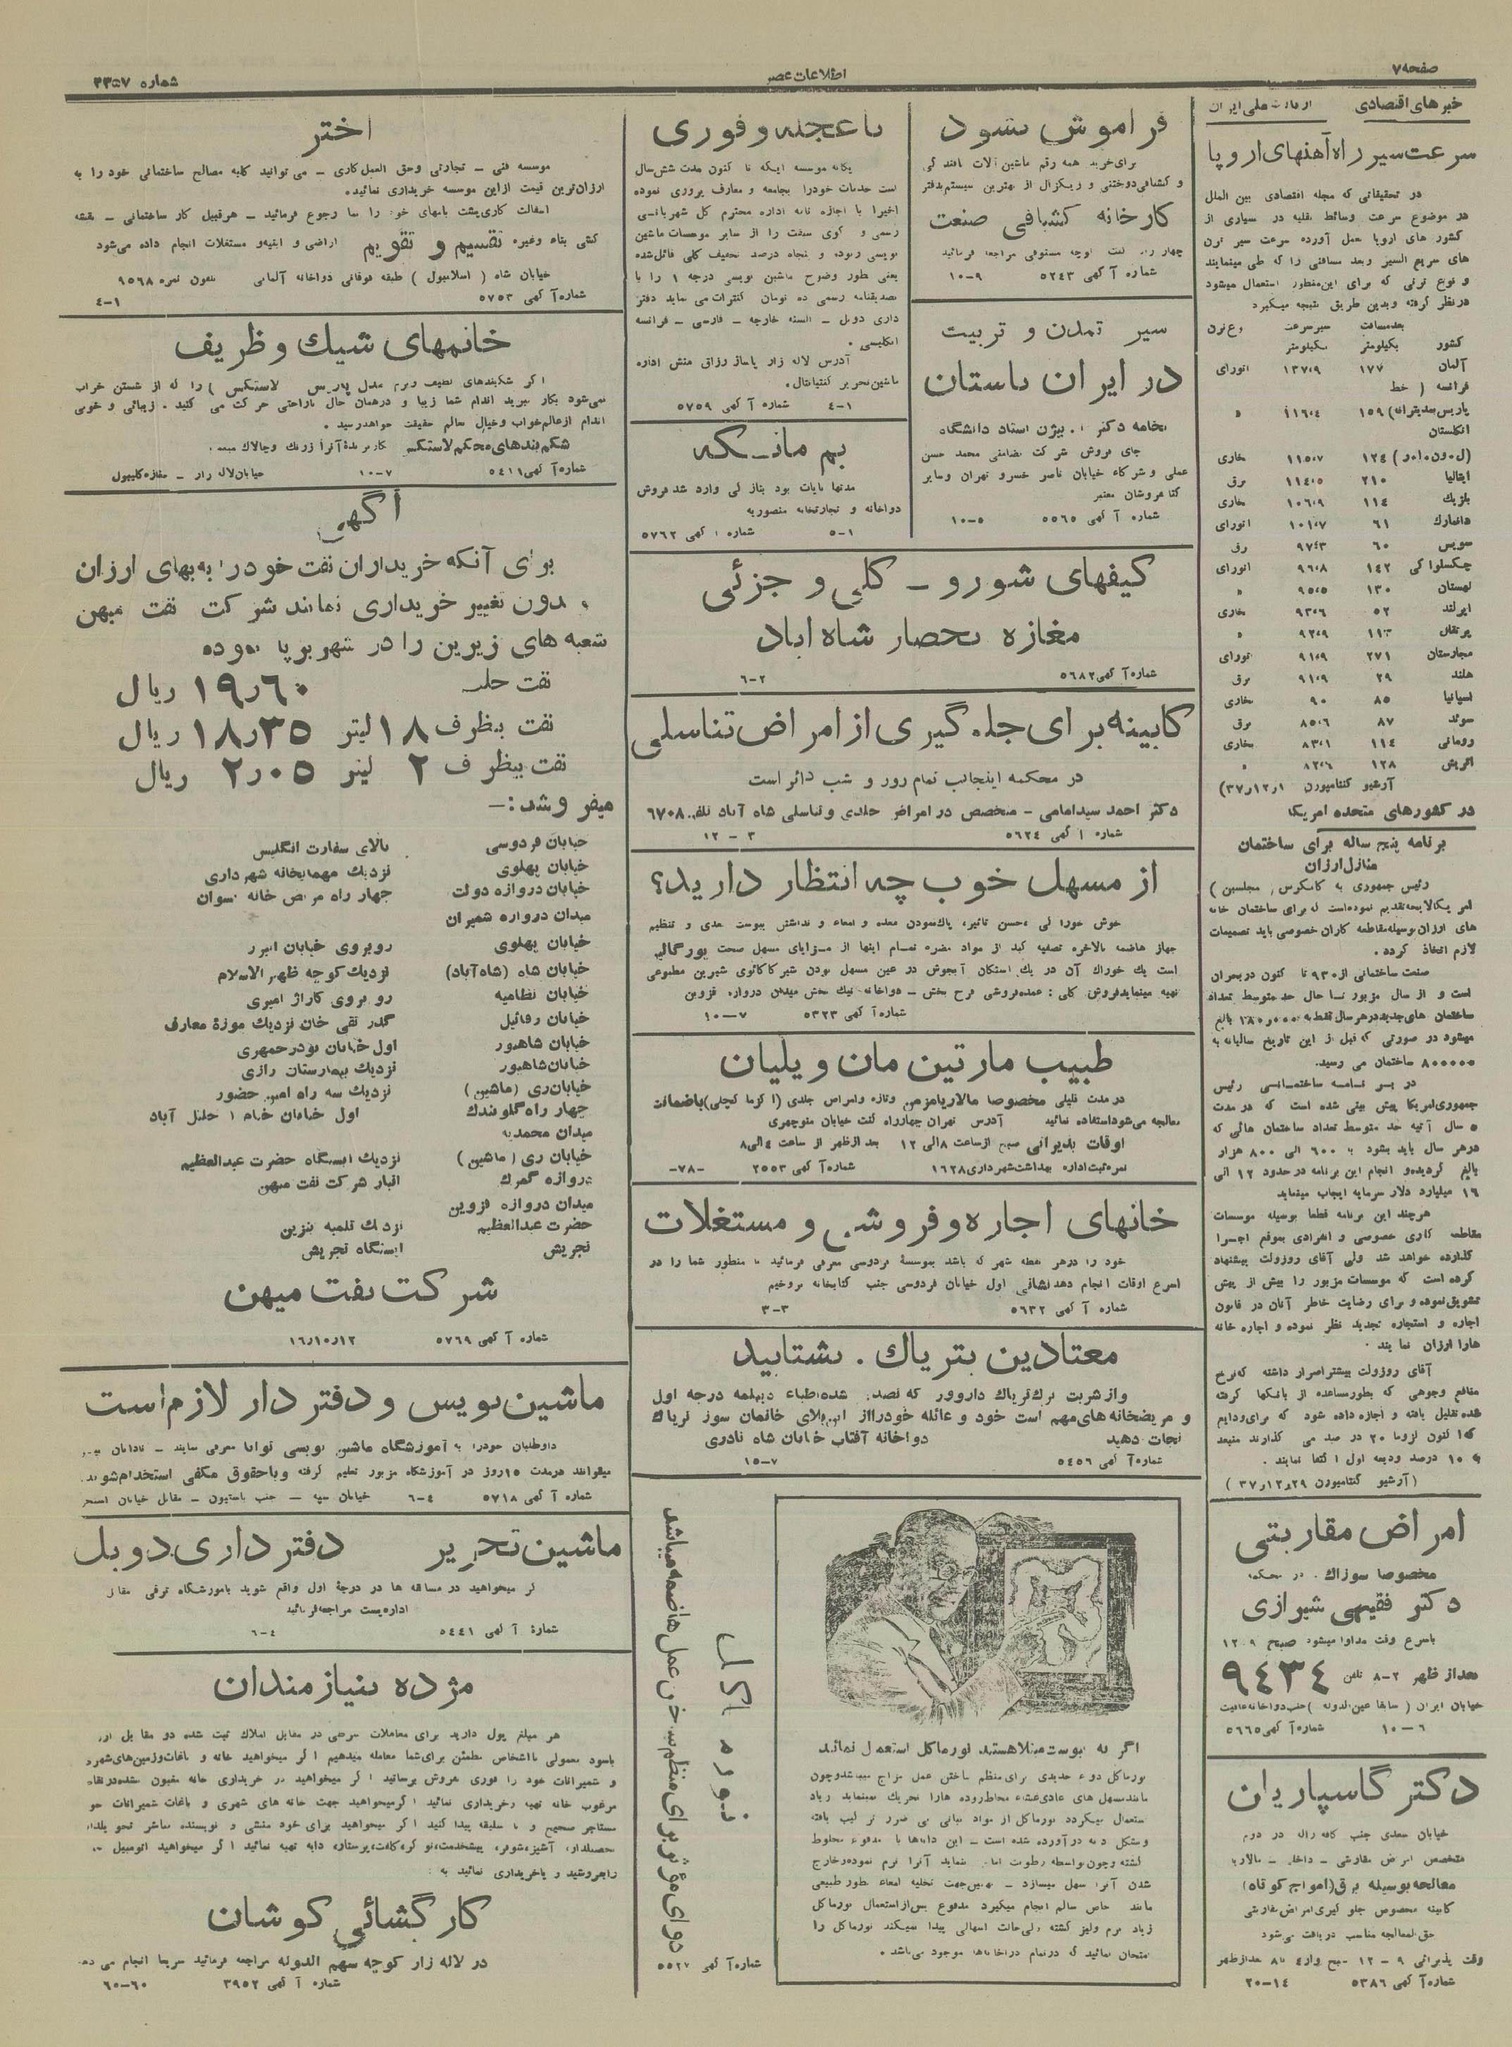 صفحه ۷
اطلاعات عصر
شماره ۳۳۵۷
خبرهای اقتصادی
سرعت سیر راه آهنهای اروپا
در تحقیقاتی که مجله اقتصادی بین الملل
در موضوع سرعت وسائط نقلیه در بسیاری از
کشور های اروپا بعمل آورده سرعت سیر ترن
های سریع السیر و بعد مسافتی را که طی مینمایند
و نوع ترنی که برای این منظور استعمال میشود
در نظر گرفته و بدین طریق نتیجه میگیرد
کشور
آلمان ۱۷۷ ۱۳۷،۹ اتورای
فرانسه ( خط
انگلستان
۱۲۴ ۱۱۵،۷ بخاری
ایتالیا ۲۱۰ ۱۱۴،۵ برق
بلژیك ۱۱۴ ۱۰۶،۹ بخاری
دانمارك ۶۱ ۱۰۱،۷ اتورای
سویس ۶۰ ۹۷،۳ برق
چکسلواکی ۱۴۲ ۹۶،۸ اتورای
لهستان ۱۳۰ ۹۵،۵ »
ایرلند ۵۲ ۹۳،۶ بخاری
پرتقال ۱۱۳ ۹۲،۹ »
مجارستان ۲۷۱ ۹۱،۹ اتورای
هلند ۲۹ ۹۱،۹ برق
اسپانیا ۸۵ ۹۰ بخاری
سوئد ۸۷ ۸۵،۶ برق
رومانی ۱۱۴ ۸۳،۱ بخاری
اتریش ۱۲۸ ۸۲،۶ »
آرشیو کنتامپورن ۳۷٫۱۲٫۱)
در کشورهای متحده امریکا
برنامه پنج ساله برای ساختمان
منازل ارزان
رئیس جمهوری به کانگرس ( مجلسین )
امریکا لایحه تقدیم نموده است که برای ساختمان خانه
های ارزان بوسیله مقاطعه کاران خصوصی باید تصمیمات
لازم اتخاذ کرده .
صنعت ساختمانی از ۹۳۰ تا کنون در بحران
است و از سال مزبور تا حال حد متوسط تعداد
ساختمان های جدید در هر سال فقط به ۱۸۰٫۰۰۰ بالغ
میشود در صورتی که قبل از این تاریخ سالیانه به
۸۰۰۰۰۰ ساختمان می رسید.
در برنامه ساختمانی رئیس
جمهوری امریکا پیش بینی شده است که در مدت
۵ سال آتیه حد متوسط تعداد ساختمان هائی که
در هر سال باید بشود به ۶۰۰ الی ۸۰۰ هزار
بالغ گردیده و انجام این برنامه در حدود ۱۲ الی
۱۶ میلیارد دلار سرمایه ایجاب مینماید
هرچند این برنامه قطعا بوسیله موسسات
مقاطعه کاری خصوصی و انفرادی بموقع اجرا
گذارده خواهد شد ولی آقای روزولت پیشنهاد
کرده است که موسسات مزبور را بیش از پیش
تشویق نموده و برای رضایت خاطر آنان در قانون
اجاره و استجاره تجدید نظر نموده و اجاره خانه
هارا ارزان نمایند .
آقای روزولت بیشتر اصرار داشته که نرخ
منافع وجوهی که بطور مساعده از بانکها گرفته
شده تقلیل یافته و اجازه داده شود که برای ودایم
که تا کنون لزوما ۲۰ در صد می گذارند منبعد
به ۱۰ درصد ودیعه اول اکتفا نمایند .
( آرشیو کنتامپورن ۲۹٫۱۲٫۳۷ )
امراض مقاربتی
مخصوصا سوزاك . در محکمه
دکتر فقیهی شیرازی
باسرع وقت مداوا میشود صبح ۹-۱۲
بعد از ظهر ۲-۸ تلفن ۹۴۳۴
خیابان ایران ( سابقا عین الدوله ) جنب دواخانه عافیت
شماره آگهی ۵۶۶۵ ۶-۱۰
دکتر گاسپاریان
خیابان سعدی جنب کافه لاله در دوم
متخصص امراض مقاربتی - داخلی - مالاریا
معالجه بوسیله برق (امواج کوتاه)
کابینه مخصوص جلو گیری امراض مقاربتی
حق المعالجه مناسب دریافت می شود
وقت پذیرائی ۹-۱۲ صبح و از ۴ تا ۸ بعد از ظهر
شماره آگهی ۵۳۸۶ ۱۴-۲۰
فراموش نشود
برای خرید همه رقم ماشین آلات بافندگی
و کشبافی و دوختنی و ریگزال از بهترین سیستم بدفتر
کارخانه کشبافی صنعت
شماره آگهی ۵۲۴۳ ۹-۱۰
سیر تمدن و تربیت
در ایران باستان
بخامه دکتر ا. بیژن استاد دانشگاه
جای فروش شرکت تضامنی محمد حسن
علمی و شرکاء خیابان ناصر خسرو تهران و سایر
کتابفروشان معتبر
شماره آگهی ۵۵۶۵ ۵-۱۰
با عجله و فوری
یگانه موسسه ایکه تا کنون مدت شش سال
است خدمات خود را بجامعه و معارف پروری نموده
اخیرا با اجازه نامه اداره محترم کل شهربانی
یعنی بطور وضوح ماشین نویسی درجه ۱ را با
تصدیقنامه رسمی ده تومان کنترات می نماید دفتر
داری دوبل - السنه خارجه - فارسی - فرانسه
انگلیسی .
آدرس لاله زار پاساژ رزاق منش اداره
ماشین تحریر کنتیننتال.
شماره آگهی ۵۷۵۹ ۱-۴
بم مانسکه
مدتها نایاب بود بتازگی وارد شد فروش
دواخانه و تجارتخانه منصوریه
شماره آگهی ۵۷۶۲ ۱-۵
کیفهای شورو - کلی و جزئی
مغازه بحصار شاه آباد
شماره آگهی ۵۶۸۲ ۲-۶
کابینه برای جلوگیری از امراض تناسلی
در محکمه اینجانب تمام روز و شب دائر است
دکتر احمد سید امامی - متخصص در امراض جلدی و تناسلی شاه آباد تلفن ۶۷۰۸
شماره آگهی ۵۶۲۴ ۳-۱۲
از مسهل خوب چه انتظار دارید؟
خوش خوراکی ، حسن تاثیر، پاك نمودن معده و امعاء و نداشتن یبوست بعدی و تنظیم
جهاز هاضمه بالاخره تصفیه کبد از مواد مضره تمام اینها از مزایای مسهل صحت بورگالیه
است یك خوراك آن در یك استکان آبجوش در عین مسهل بودن شیر کاکائوی شیرین مطبوعی
تهیه مینماید فروش کلی : عمده فروشی فرح بخش - دواخانه نیك بخش میدان دروازه قزوین
شماره آگهی ۵۳۲۳ ۷-۱۰
طبیب مارتین مان ویلیان
در مدت قلیلی مخصوصا مالاریا مزمن و تازه و امراض جلدی (اکزما کچلی) باضمانت
معالجه می شود استفاده نمائید آدرس تهران چهارراه کنت خیابان منوچهری
اوقات پذیرائی صبح از ساعت ۸ الی ۱۲ بعد از ظهر از ساعت ۴ الی ۸
نمره ثبت اداره بهداشت شهرداری ۱۶۲۸ شماره آگهی ۲۵۵۳ -۷۸-
خانهای اجاره و فروشی و مستغلات
خود را در هر نقطه شهر که باشد بموسسه فردوسی معرفی فرمائید تا منظور شما را در
اسرع اوقات انجام دهد نشانی اول خیابان فردوسی جنب کتابخانه بروخیم
شماره آگهی ۵۶۳۲ ۳-۳
معتادین بتریاك . بشتابید
و از شربت ترك تریاك داروور که تصدیق شده اطباء دیپلمه درجه اول
و مریضخانه های مهم است خود و عائله خود را از ابتلای خانمان سوز تریاك
نجات دهید دواخانه آفتاب خیابان شاه نادری
شماره آگهی ۵۴۵۶ ۷-۱۵
اگر به یبوست مبتلا هستید نورماکل استعمال نمائید
نورماکل دوای جدیدی برای منظم ساختن عمل مزاج میباشد و چون
مانند مسهل های عادی غشاء مخاط روده هارا تحریك نمینماید زیاد
استعمال میگردد نورماکل از مواد نباتی بی ضرر ترکیب یافته
و بشکل دانه در آورده شده است - این دانه ها با مدفوع مخلوط
شدن آنرا سهل میسازد - بهمین جهت تخلیه امعاء بطور طبیعی
مانند اشخاص سالم انجام میگیرد مدفوع پس از استعمال نورماکل
زیاد نرم و لیز گشته ولی حالت اسهالی پیدا نمیکند نورماکل را
امتحان نمائید که در تمام دواخانه ها موجود می باشد .
نورماکل
دوای مؤثر برای منظم ساختن عمل هاضمه میباشد
شماره آگهی ۵۵۲۷
اختر
موسسه فنی - تجارتی و حق العمل کاری - می توانید کلیه مصالح ساختمانی خود را به
ارزان ترین قیمت از این موسسه خریداری نمائید.
اسفالت کاری پشت بامهای خود را بما رجوع فرمائید - هر قبیل کار ساختمانی - نقشه
کشی بناء وغیره تقسیم و تقویم اراضی و ابنیه و مستغلات انجام داده می شود
خیابان شاه ( اسلامبول ) طبقه فوقانی دواخانه آلمانی تلفون نمره ۹۵۶۸
شماره آگهی ۵۷۵۳ ۱-۴
خانمهای شیك و ظریف
اگر شکم بندهای لطیف و نرم مدل پاریس ( لاستکس ) را که از شستن خراب
نمی شود بکار ببرید اندام شما زیبا و در همان حال براحتی حرکت می کنید . زیبائی و خوبی
اندام از عالم خواب و خیال بعالم حقیقت خواهد رسید .
شماره آگهی ۵۴۱۱ ۷-۱۰ خیابان لاله زار - مغازه کلیپول
آگهی
برای آنکه خریداران نفت خود را به بهای ارزان
بدون تغییر خریداری نمایند شرکت نفت میهن
شعبه های زیرین را در شهر برپا نموده
نفت حلب ۱۹٫۶۰ ریال
نفت بظرف ۱۸ لیتر ۱۸٫۳۵ ریال
نفت بظرف ۲ لیتر ۲٫۰۵ ریال
میفروشد:-
خیابان فردوسی بالای سفارت انگلیس
خیابان پهلوی نزدیك مهمانخانه شهرداری
خیابان دروازه دولت چهار راه مریض خانه نسوان
میدان دروازه شمیران
خیابان پهلوی روبروی خیابان اکبر
خیابان شاه (شاه آباد) نزدیك کوچه ظهیر الاسلام
خیابان نظامیه روبروی گاراژ امیری
خیابان رفائیل گذر تقی خان نزدیك موزه معارف
خیابان شاهپور اول خیابان بوذرجمهری
خیابان شاهپور نزدیك بیمارستان رازی
خیابان ری (ماشین) نزدیك سه راه امین حضور
چهار راه گلوبندك اول خیابان خیام ( جلیل آباد
میدان محمدیه
خیابان ری (ماشین) نزدیك ایستگاه حضرت عبدالعظیم
دروازه گمرك انبار شرکت نفت میهن
میدان دروازه قزوین
حضرت عبدالعظیم نزدیك تلمبه بنزین
تجریش ایستگاه تجریش
شرکت نفت میهن
شماره آگهی ۵۷۶۹ ۱۶٫۱۰٫۱۲
ماشین نویس و دفتر دار لازم است
داوطلبان خود را به آموزشگاه ماشین نویسی توانا معرفی نمایند -
میتوانند در مدت ۱۵ روز در آموزشگاه مزبور تعلیم گرفته و با حقوق مکفی استخدام شوند.
شماره آگهی ۵۷۱۸ ۴-۶ خیابان سپه - جنب باستیون - مقابل خیابان استخر
ماشین تحریر دفتر داری دوبل
گر میخواهید در مسابقه ها در درجه اول واقع شوید بآموزشگاه ترقی مقابل
اداره پست مراجعه فرمائید
شمارهٔ آگهی ۵۴۴۱ ۴-۶
مژده بنیازمندان
هر مبلغ پول دارید برای معاملات شرطی در مقابل املاك ثبت شده دو مقابل ارزش
باسود معمولی با اشخاص مطمئن برای شما معامله میدهیم اگر میخواهید خانه و باغات و زمین های شهری
و شمیرانات خود را فوری بفروش برسانید اگر میخواهید در خریداری خانه مغبون نشده در نقاط
مرغوب خانه تهیه و خریداری نمائید اگر میخواهید جهت خانه های شهری و باغات شمیرانات خود
مستأجر صحیح و با سلیقه پیدا کنید اگر میخواهید برای خود منشی و نویسنده مباشر تحویلدار
تحصیلدار، آشپز، شوفر، پیشخدمت، نوکر، کلفت، پرستار، دایه تهیه نمائید اگر میخواهید اتومبیل
را بفروشید و یا خریداری نمائید به :
کارگشائی کوشان
در لاله زار کوچه سهم الدوله مراجعه فرمائید سریعا انجام می دهد
شماره آگهی ۳۹۵۲ ۶۰-۶۰